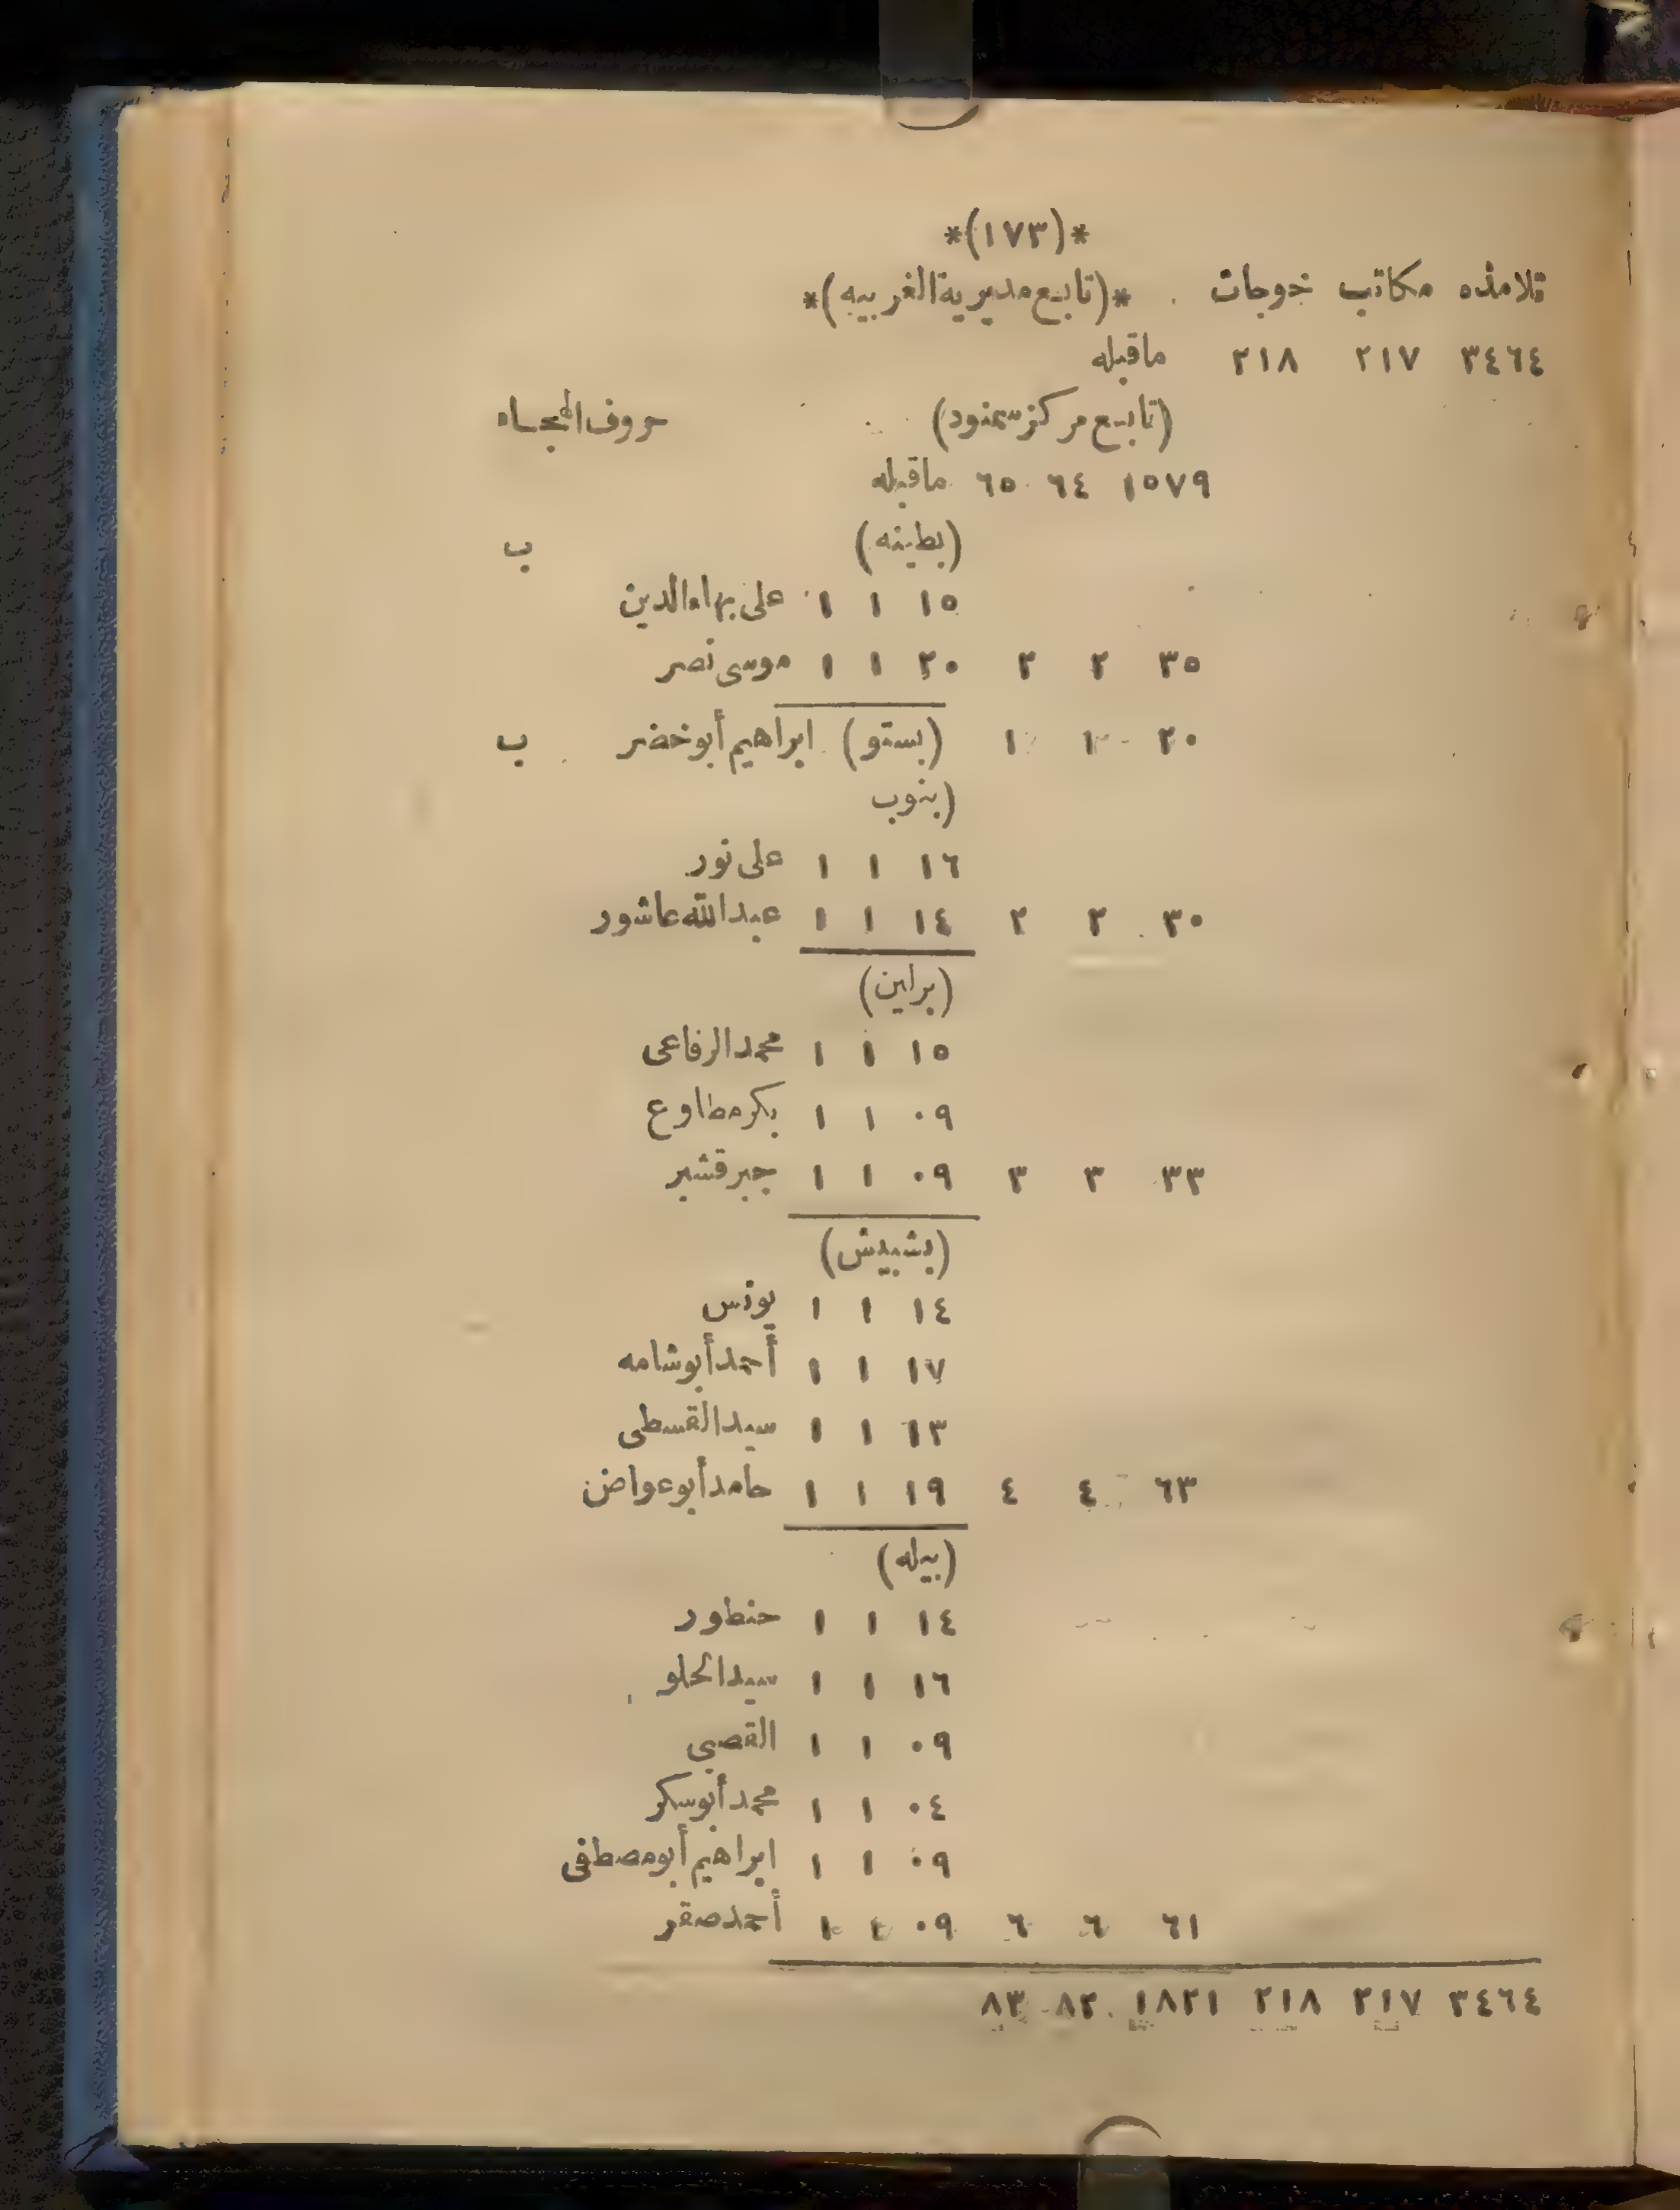 *(١٧٣)*
تلامذه مكاتب خوجات *(تابع مديرية الغربيه)*
٣٤٦٤ ٢١٧ ٢١٨ ماقبله
(تابع مركز سمنود) حروف الهجاء
١٥٧٩ ٦٤ ٦٥ ماقبله
(بطينه) ب
١٥ ١ ١ على بهاء الدين
٣٥ ٢ ٢ ٢٠ ١ ١ موسى نصر
٢٠ ١ ١ (بستو) ابراهيم أبو خضر ب
(بنوب
١٦ ١ ١ على نور
٣٠ ٢ ٢ ١٤ ١ ١ عبد الله عاشور
(براين)
١٥ ١ ١ محمد الرفاعى
٠٩ ١ ١ بكر مطاوع
٣٣ ٣ ٣ ٠٩ ١ ١ جبر قشبر
(بشبيش)
١٤ ١ ١ يونس
١٧ ١ ١ أحمد أبو شامه
١٣ ١ ١ سيد القسطى
٦٣ ٤ ٤ ١٩ ١ ١ حامد أبو عواض
(بيله)
١٤ ١ ١ حنطور
١٦ ١ ١ سيد الحلو
٠٩ ١ ١ القصبى
٠٤ ١ ١ محمد أبو سكر
٠٩ ١ ١ ابراهيم أبو مصطفى
٦١ ٦ ٦ ٠٩ ١ ١ أحمد صقر
٣٤٦٤ ٢١٧ ٢١٨ ١٨٢١ ٨٢ ٨٣